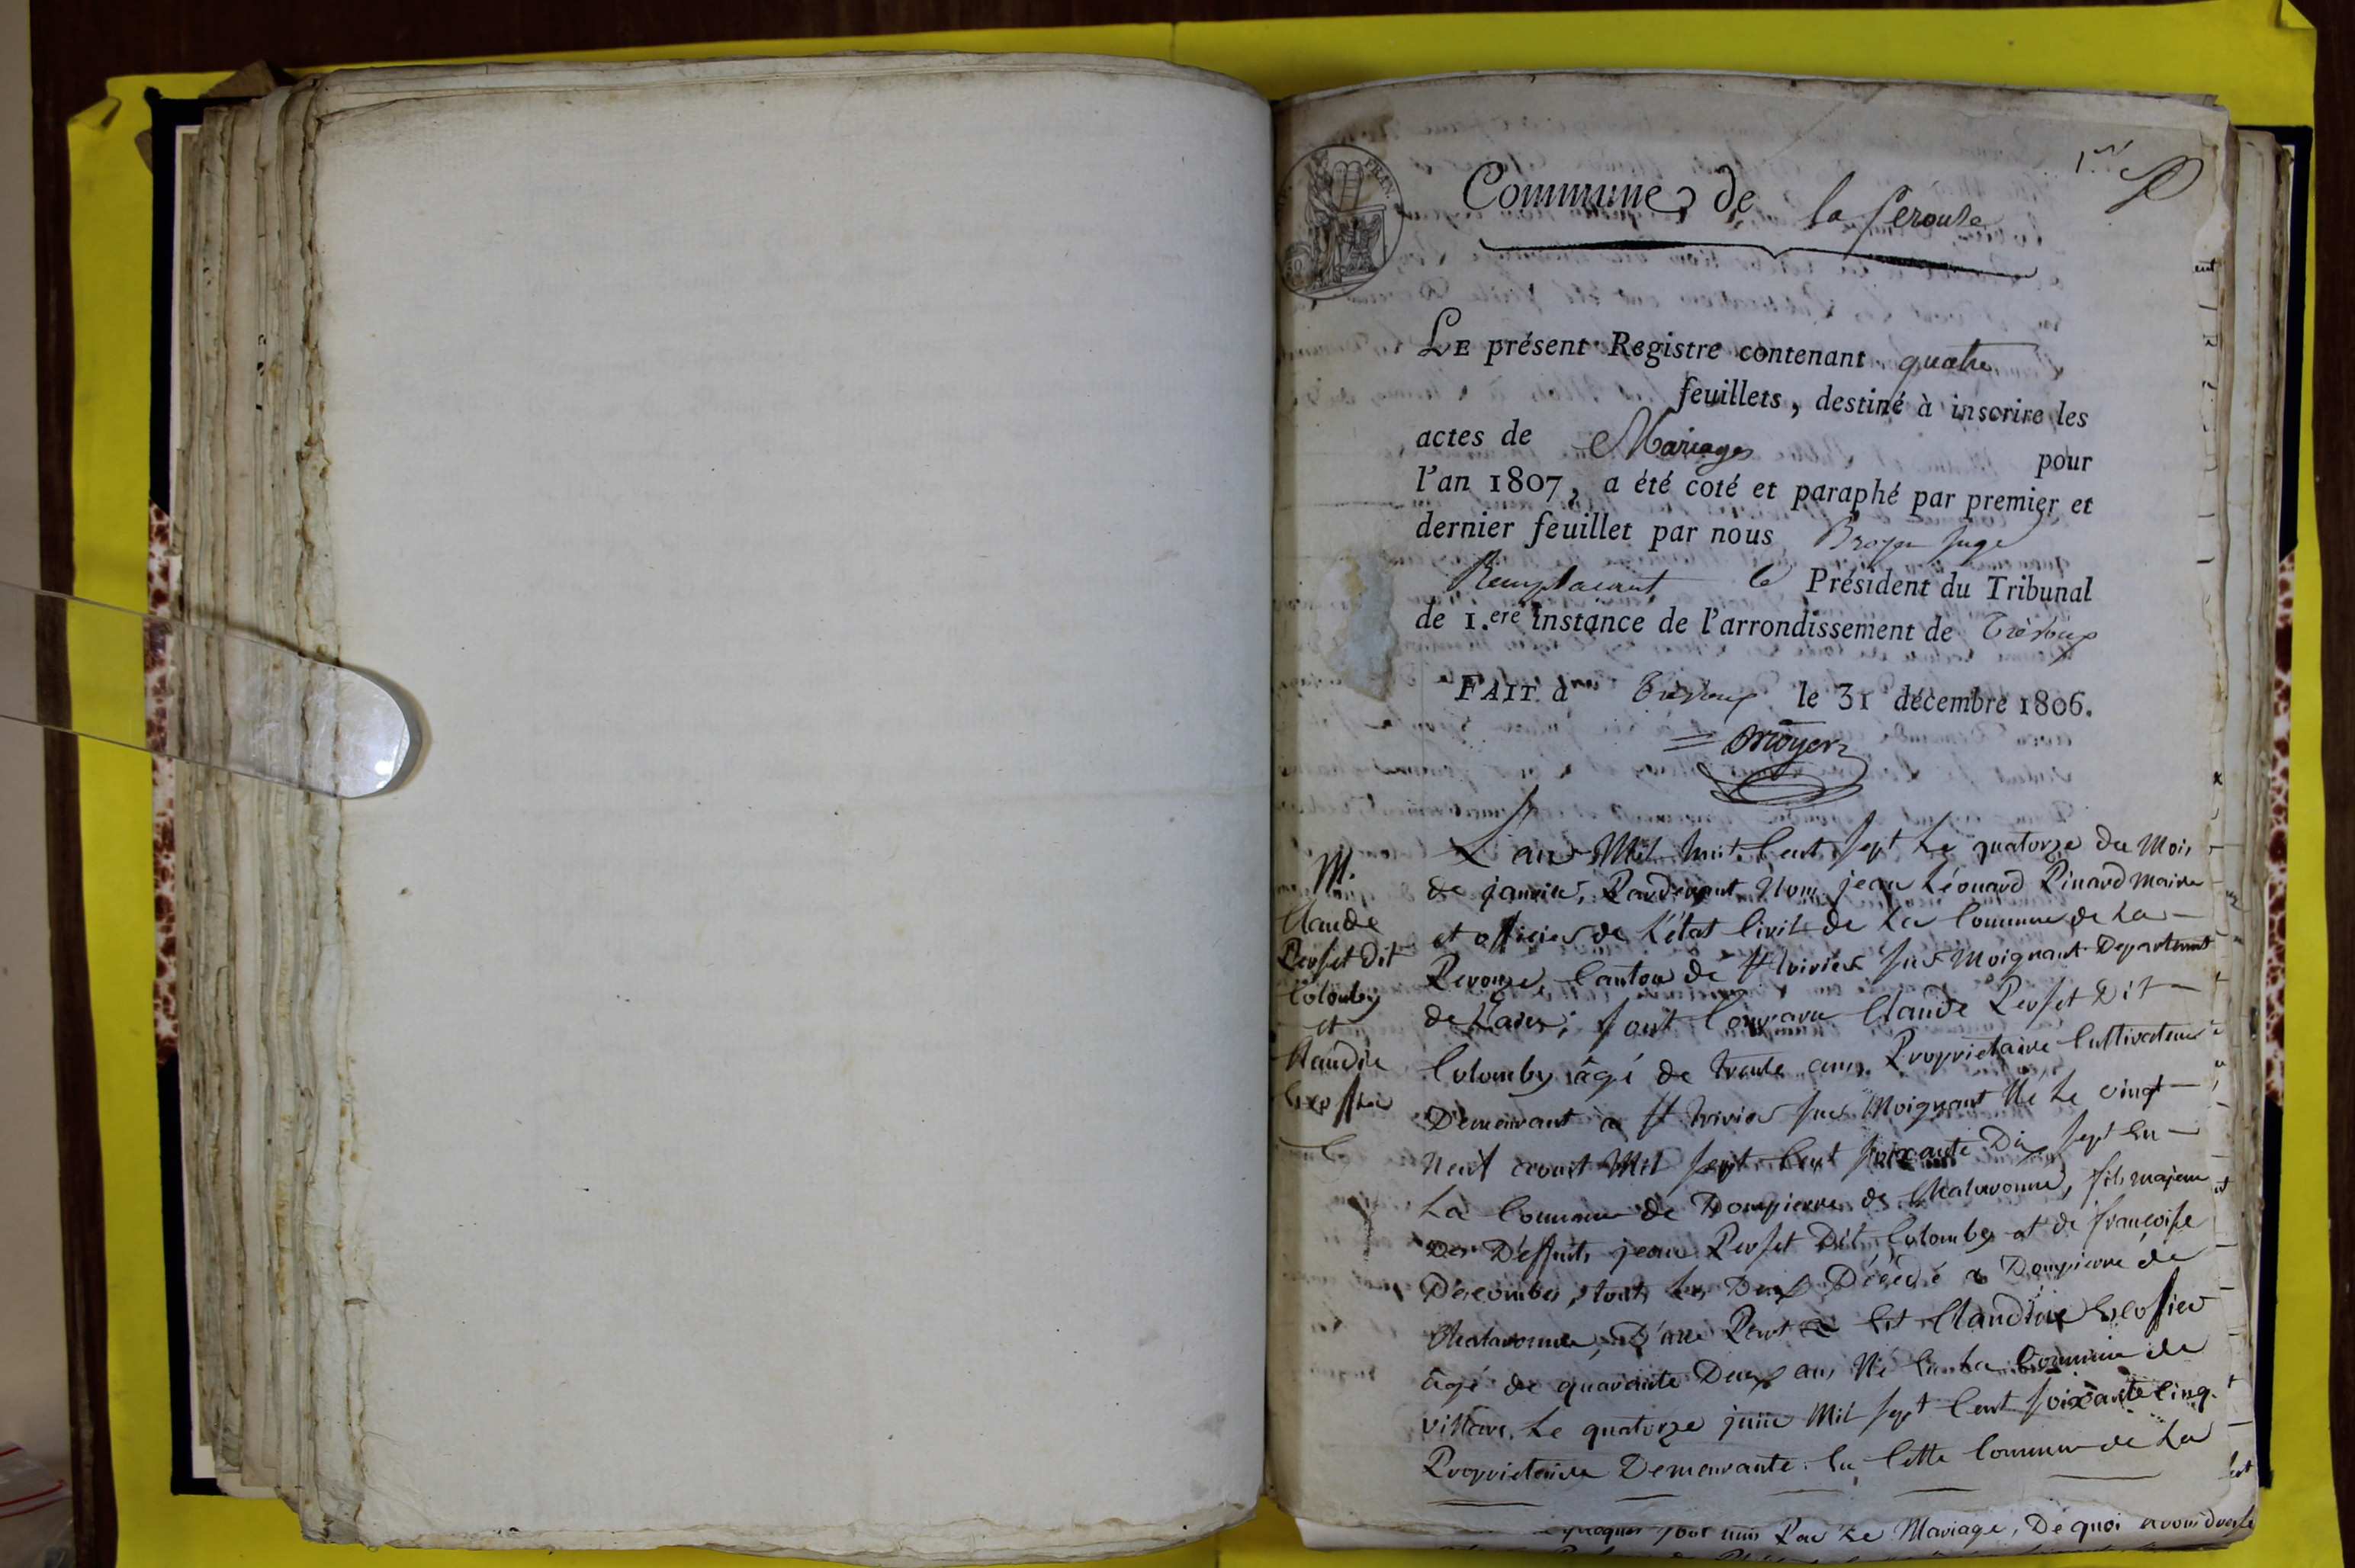 1.er
FRAN.
Commune de la Perouse
LE présent Registre contenant quatre
feuillets, destiné à inscrire les
actes de Mariages pour
l'an 1807, a été coté et paraphé par premier et
dernier feuillet par nous Broyer Juge
Remplacant le Président du Tribunal
de 1.ere instance de l'arrondissement de Trévoux
FAIT à Trévoux le 31 décembre 1806.
Broyer
M.
Claude
Perset dit
Colomby
et
Claudine
L'an Mil huit Cent Sept Le quatorze du Mois
de janvier, Pardevant Nous jean Léonard Pinard Maire
et officier de L'état Civil de La Commune de La
Perouse, Canton de St trivier sur Moignant Departement
de L'ain; sont Comparu Claude Perset Dit
Colomby âgé de trente ans, Propriétaire Cultivateur
Demeurant a St trivier sur Moignant Né Le vingt
Neuf aoust Mil sept Cent soixante Dix sept En
La Commune de Dompierre de Chalaronne, fils majeur
Des Deffunts jean Perset Dit Colomby et de françoise
Décombes, touts Les Deux Décédé a Dompierre de
Chalaronne, D'une Part & Et Claudine Escoffier
âgé de quarante Deux ans Né En La Commune de
villars, Le quatorze juin Mil sept Cent soixante Cinq.
Propriétaire Demeurante En Cette Commune de La
sont unis Par Le Mariage, De quoi avons dressé